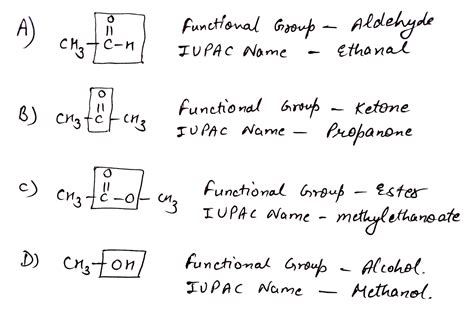 A) CH3 - C - H Functional Group - Aldehyde
O
IUPAC Name - Ethanal
B) CH3 - C - CH3 Functional Group - Ketone
O
IUPAC Name - Propanone
C) CH3 - C - O - CH3 Functional Group - Ester
O
IUPAC Name - methylethanoate
D) CH3 - OH Functional Group - Alcohol.
IUPAC Name - Methanol.